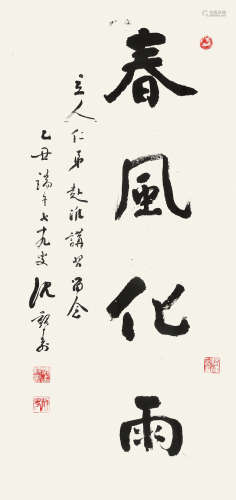 春風化雨
立人仁弟赴淮講學留念
乙丑端午七十九叟沈